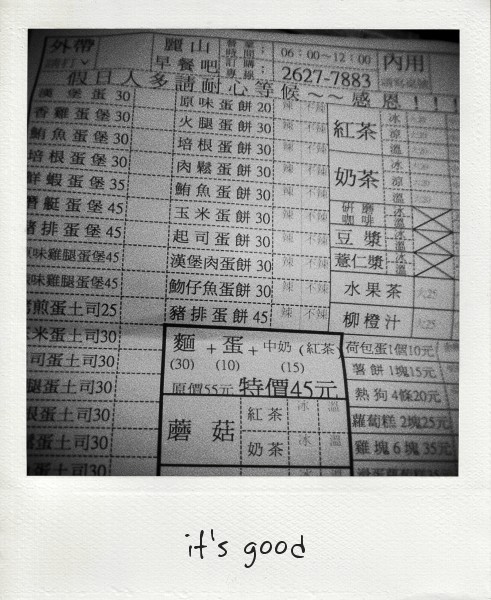 外帶 麗山 早餐吧 營業時間： 訂購專線： 06：00～12：00 2627-7883 內用
請打ˇ
假日人多請耐心等候～～感恩！！！
漢堡蛋30
香雞蛋堡30
鮪魚蛋堡30
培根蛋堡30
鮮蝦蛋堡35
潛艇蛋堡45
豬排蛋堡45
味雞腿蛋堡45
味雞腿蛋堡45
煎蛋土司25
米蛋土司30
司蛋土司30
腿蛋土司30
根蛋土司30
蛋土司30
蛋土司30
原味蛋餅20 辣 不辣
火腿蛋餅30 辣 不辣
培根蛋餅30 辣 不辣
肉鬆蛋餅30 辣 不辣
鮪魚蛋餅30 辣 不辣
玉米蛋餅30 辣 不辣
起司蛋餅30 辣 不辣
漢堡肉蛋餅30 辣 不辣
魩仔魚蛋餅30 辣 不辣
豬排蛋餅45 辣 不辣
麵＋蛋＋中奶(紅茶)
(30) (10) (15)
原價55元 特價45元
蘑菇 紅茶 冰 溫
奶茶 冰 溫
紅茶 冰 涼 溫
奶茶 冰 涼 溫
研磨咖啡 冰 溫
豆漿 冰 溫
薏仁漿 冰 溫
水果茶 大25
柳橙汁 大25
荷包蛋1個10元
薯餅1塊15元
熱狗4條20元
蘿蔔糕2塊25元
雞塊6塊35元
it's good